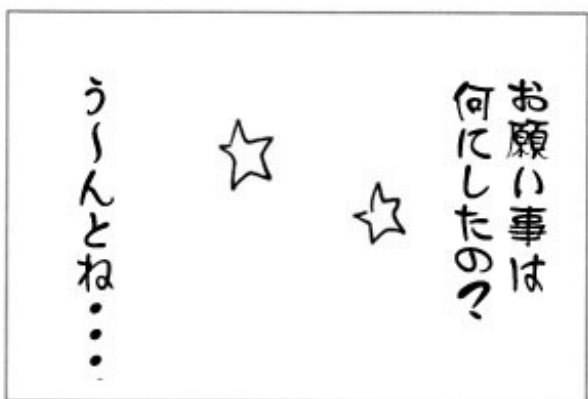 お願い事は
何にしたの？
う～んとね・・・・